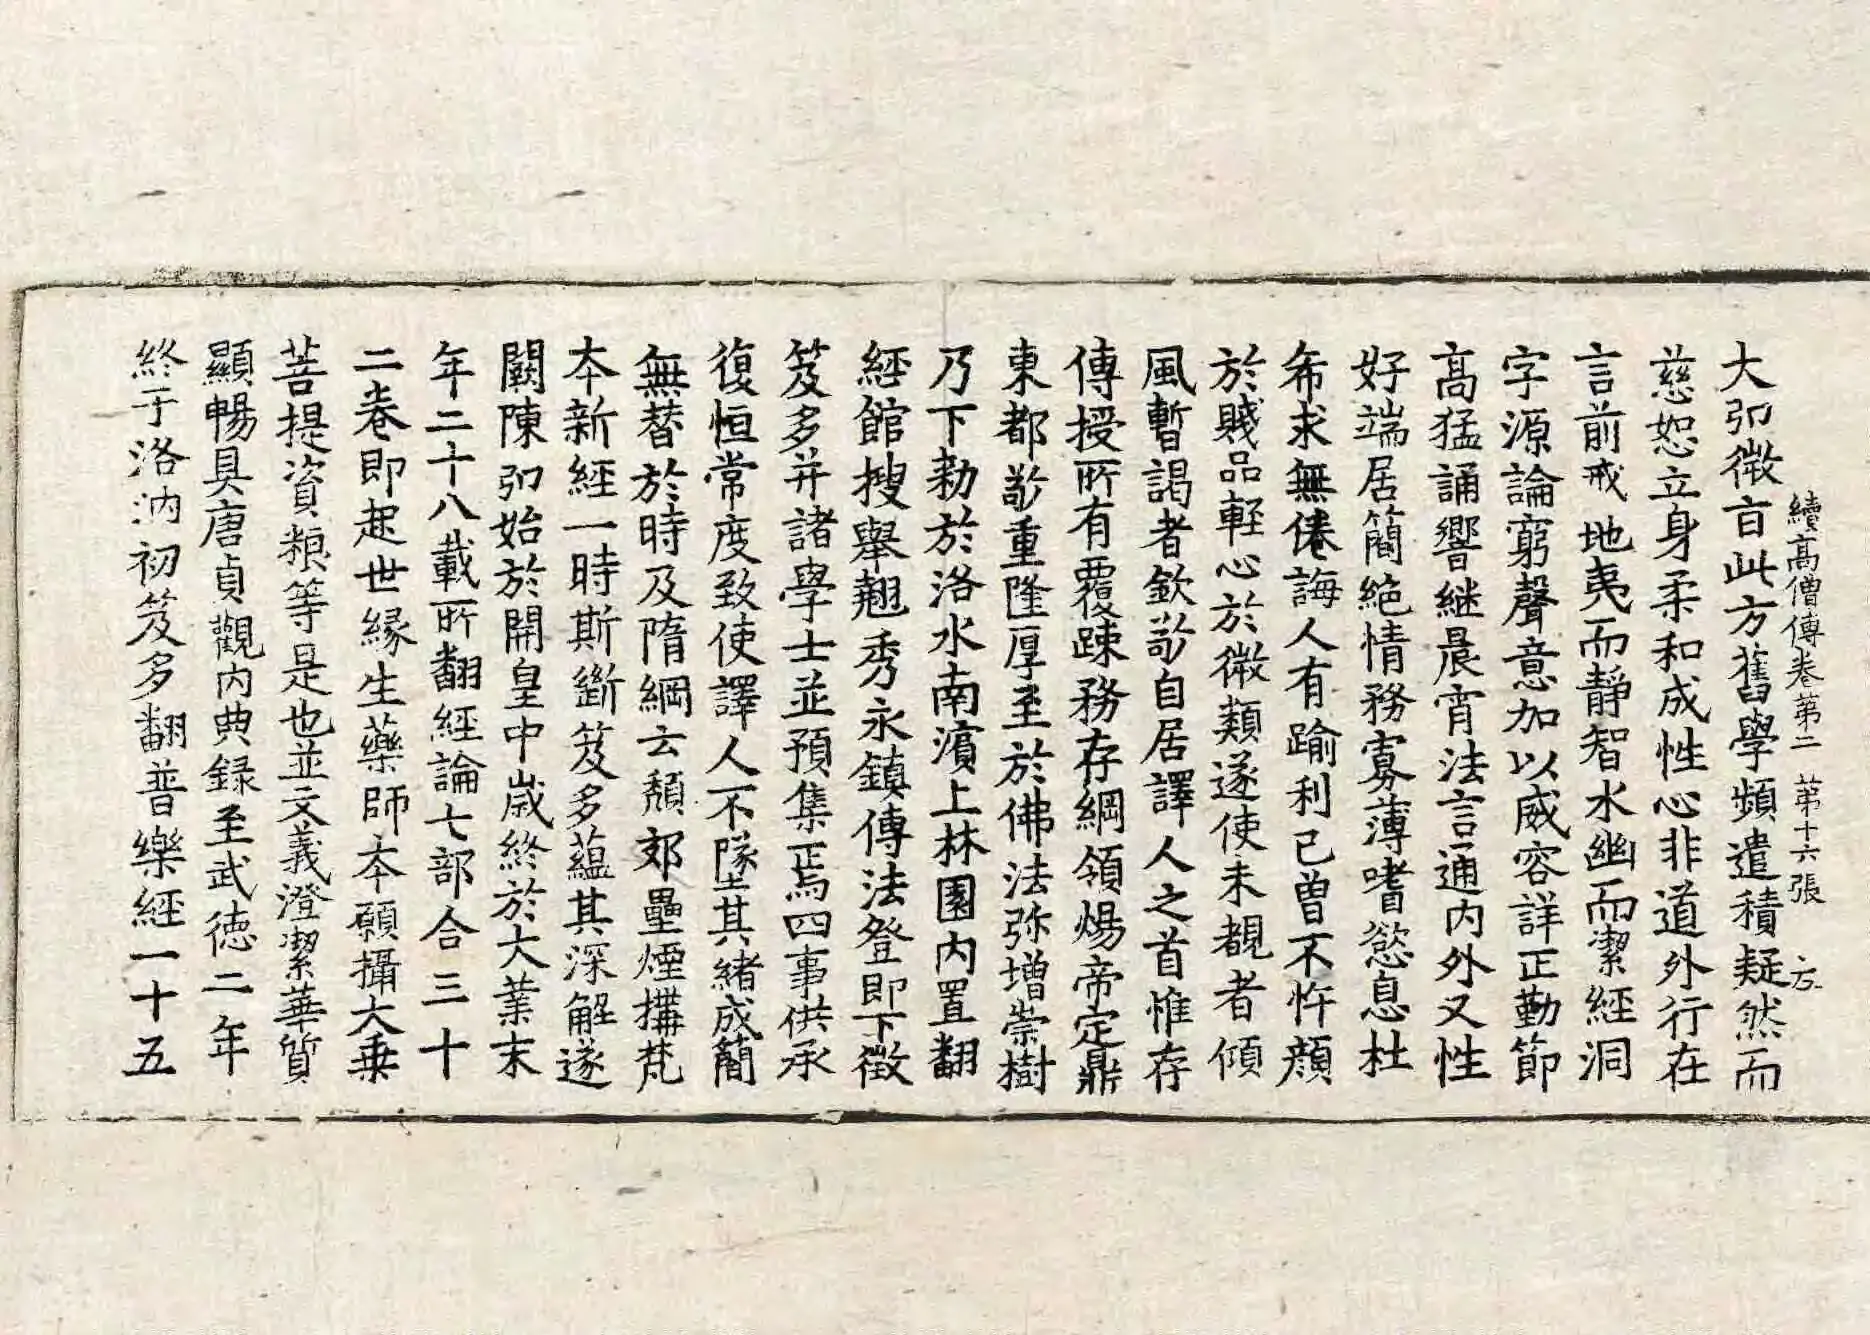 續高僧傳卷第二　第十六張　左
大卬微言此方舊學頻遣積疑然而
慈恕立身柔和成性心非道外行在
言前戒地夷而静智水幽而潔經洞
字源論窮聲意加以威容詳正勤節
高猛誦響継晨宵法言通内外又性
好端居簡絶情務寡薄嗜慾息杜
希求無倦誨人有踰利已曾不忤顔
於賤品輕心於微類遂使未覩者傾
風暫謁者欽敬自居譯人之首惟存
傳授所有覆踈務存綱領煬帝定鼎
東都敬重隆厚至於佛法弥增崇樹
乃下勑於洛水南濱上林園内置翻
經館搜舉翹秀永鎮傳法登即下徴
笈多并諸學士並預集焉四事供承
復恒常度致使譯人不墜其緒成簡
無替於時及隋綱云頹郊壘煙構梵
本新經一時斯斷笈多蘊其深解遂
闕陳卬始於開皇中歳終於大業末
年二十八載所翻經論七部合三十
二卷即起世縁生藥師本願攝大乗
菩提資粮等是也並文義澄潔華質
顯暢具唐貞觀内典録至武徳二年
終于洛汭初笈多翻普樂經一十五